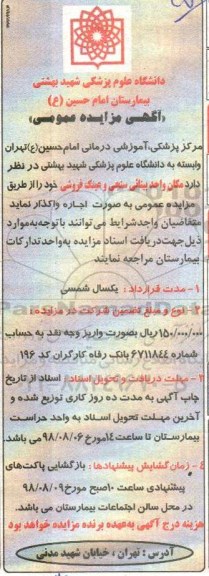 دانشگاه علوم پزشکی شهید بهشتی
بیمارستان امام حسین (ع)
«آگهی مزایده عمومی»
مرکز پزشکی،آموزشی درمانی امام حسین(ع)تهران
وابسته به دانشگاه علوم پزشکی شهید بهشتی در نظر
دارد مکان واحد بینائی سنجی و عینک فروشی خود را از طریق
مزایده عمومی به صورت اجاره واگذار نماید
متقاضیان واجد شرایط می توانند با توجه به موارد
ذیل جهت دریافت اسناد مزایده به واحد تدارکات
بیمارستان مراجعه نمایند
۱- مدت قرارداد : یکسال شمسی
۲- نوع و مبلغ تضمین شرکت در مزایده :
۱۵۰/۰۰۰/۰۰۰ ریال بصورت واریز وجه نقد به حساب
شماره ۶۷۱۱۸۴۴ بانک رفاه کارگران کد ۱۹۶
۳- مهلت دریافت و تحویل اسناد: اسناد از تاریخ
چاپ آگهی به مدت ده روز کاری توزیع شده و
آخرین مهلت تحویل اسناد به واحد حراست
بیمارستان تا ساعت ۱۴ مورخ ۹۸/۰۸/۰۶ می باشد.
۴- زمان گشایش پیشنهادها : بازگشایی پاکت های
پیشنهادی ساعت ۱۰صبح مورخ ۹۸/۰۸/۰۹
در محل سالن اجتماعات بیمارستان می باشد.
هزینه درج آگهی به عهده برنده مزایده خواهد بود
آدرس : تهران ، خیابان شهید مدنی